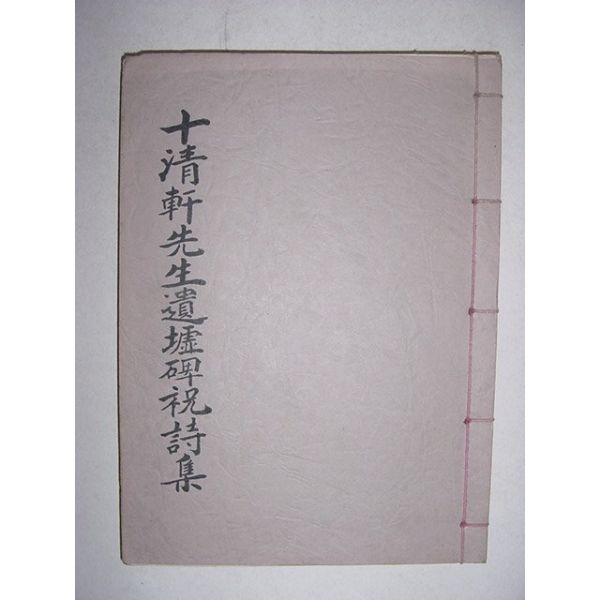 十清軒先生遺墟碑祝詩集